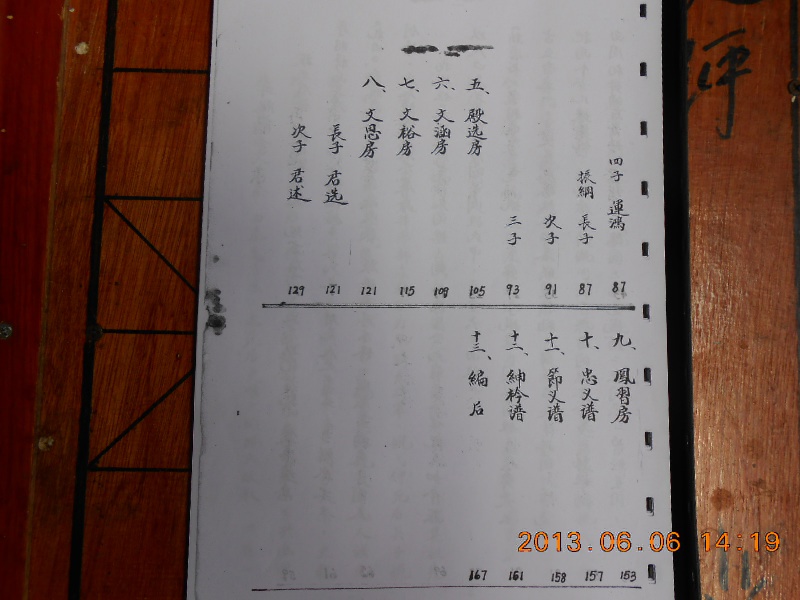 四子 運鴻 87
振綱 長子 87
次子 91
三子 93
五、殿选房 105
六、文涵房 109
七、文裕房 115
八、文思房 121
長子 君选 121
次子 君述 129
九、鳳習房 153
十、忠义谱 157
十一、節义谱 158
十二、紳衿谱 161
十三、編后 167
2013.06.06 14:19